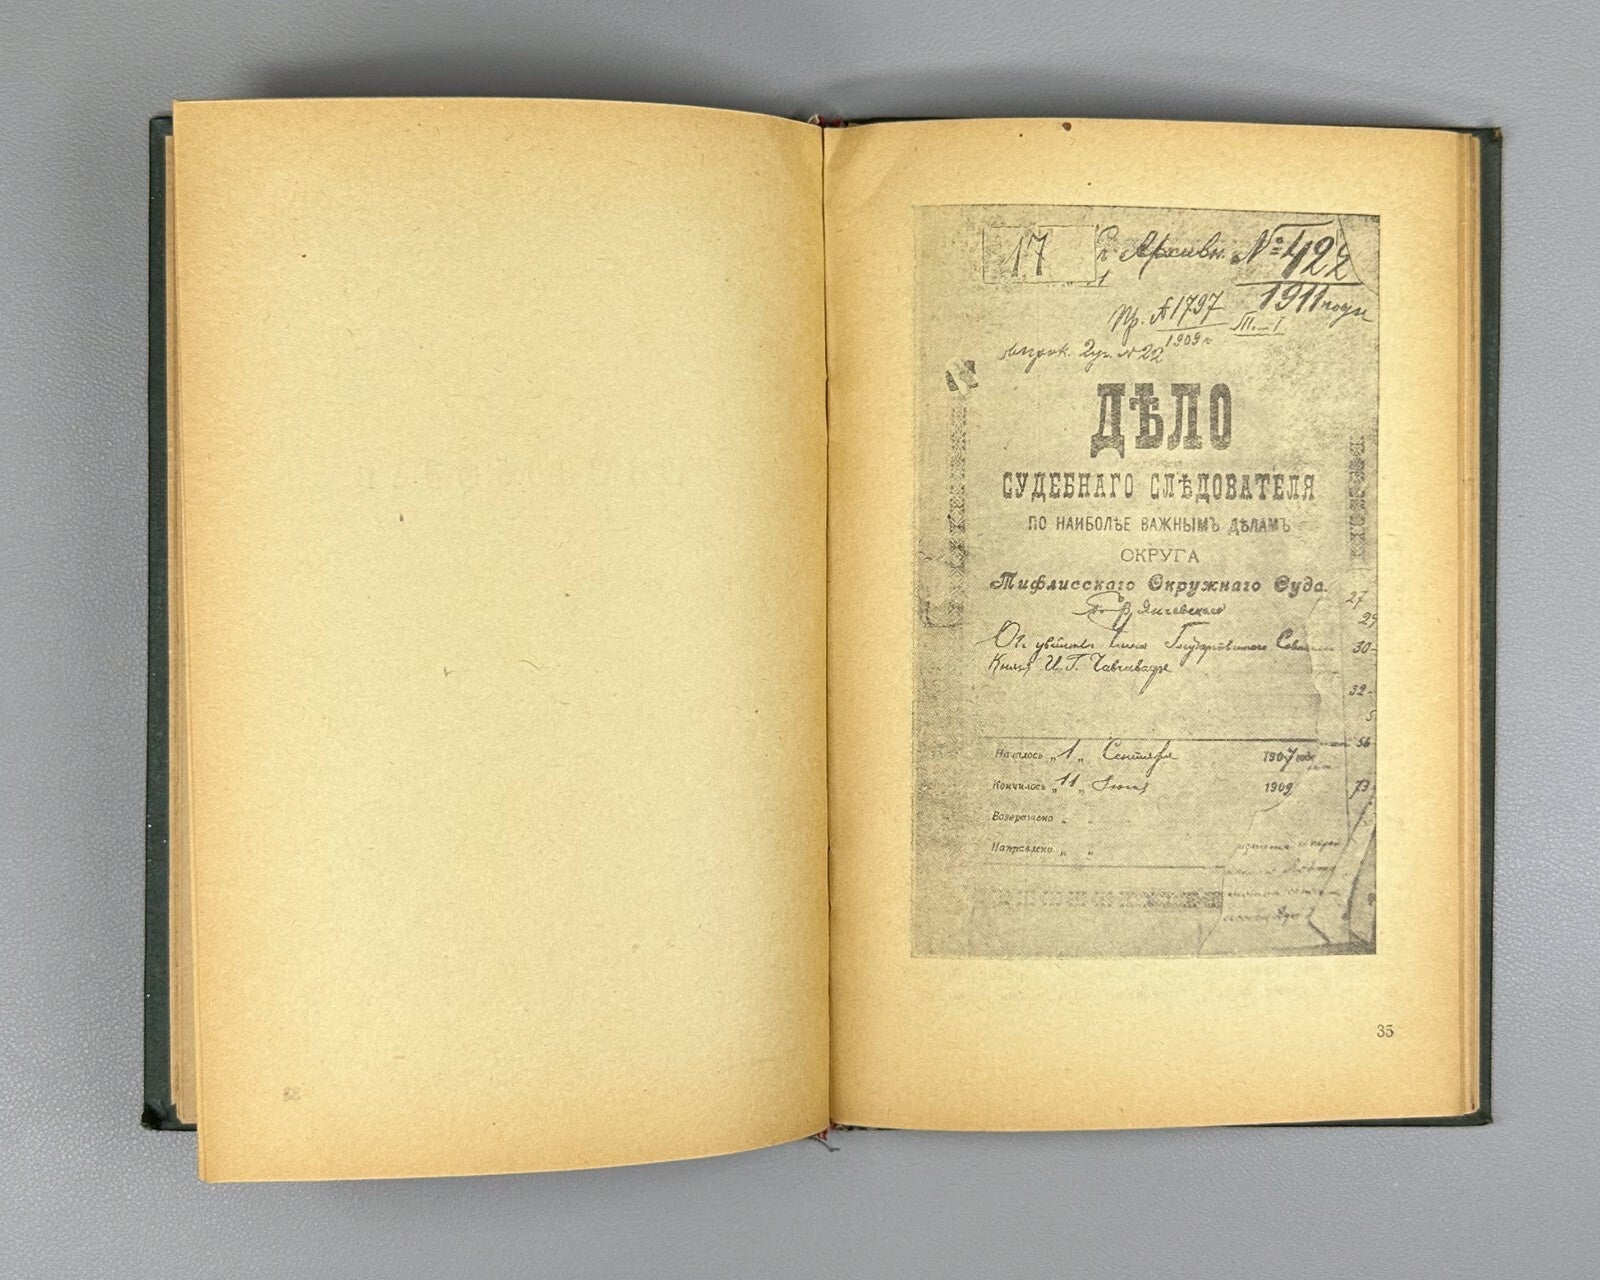 17
Архивн. №422
1911 года
Пр. А 1797
1909 г.
Том I
ДѢЛО
СУДЕБНАГО СЛѢДОВАТЕЛЯ
ПО НАИБОЛѢЕ ВАЖНЫМЪ ДѢЛАМЪ
ОКРУГА
Тифлисскаго Окружнаго Суда.
Объ убійствѣ члена Государственнаго Совѣта
Князя И. Г. Чавчавадзе
27
29
30-
32-
5
56
Началось „1„ Сентября 1907 года
Кончилось „11„ Іюня 1909
73
Возвращено „ „
Направлено „ „
35